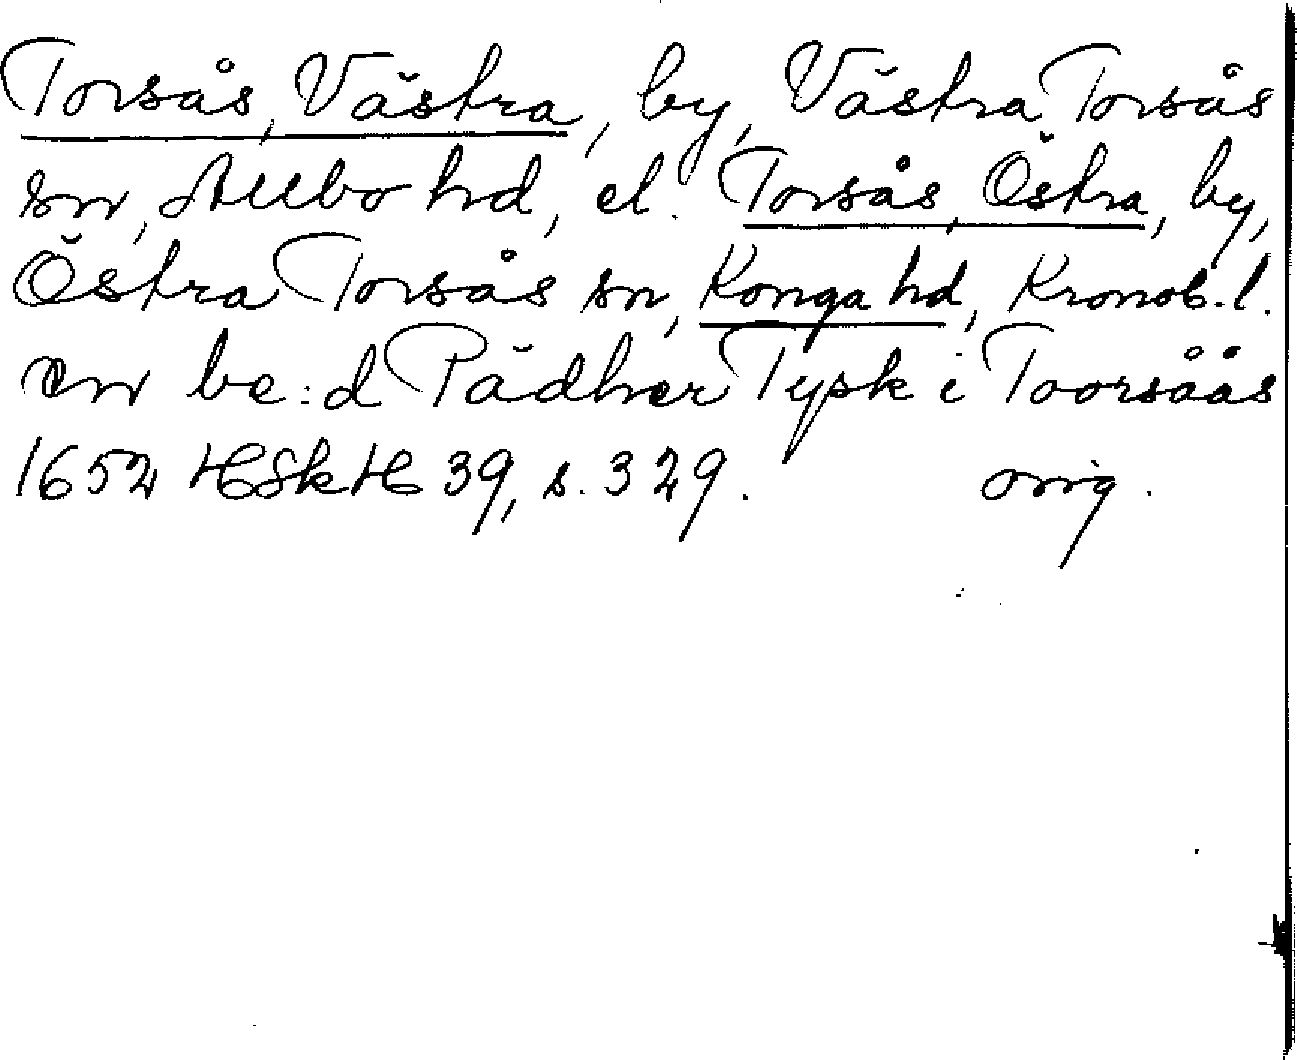 Torsås, Västra, by, Västra Torsås
sn, Allbo hd, el. Torsås, Östra, by,
Östra Torsås sn, Konga hd, Kronob. l.
en be:d Pädher Tysk i Toorsåås
1652 HSkH 39, s. 329. orig.